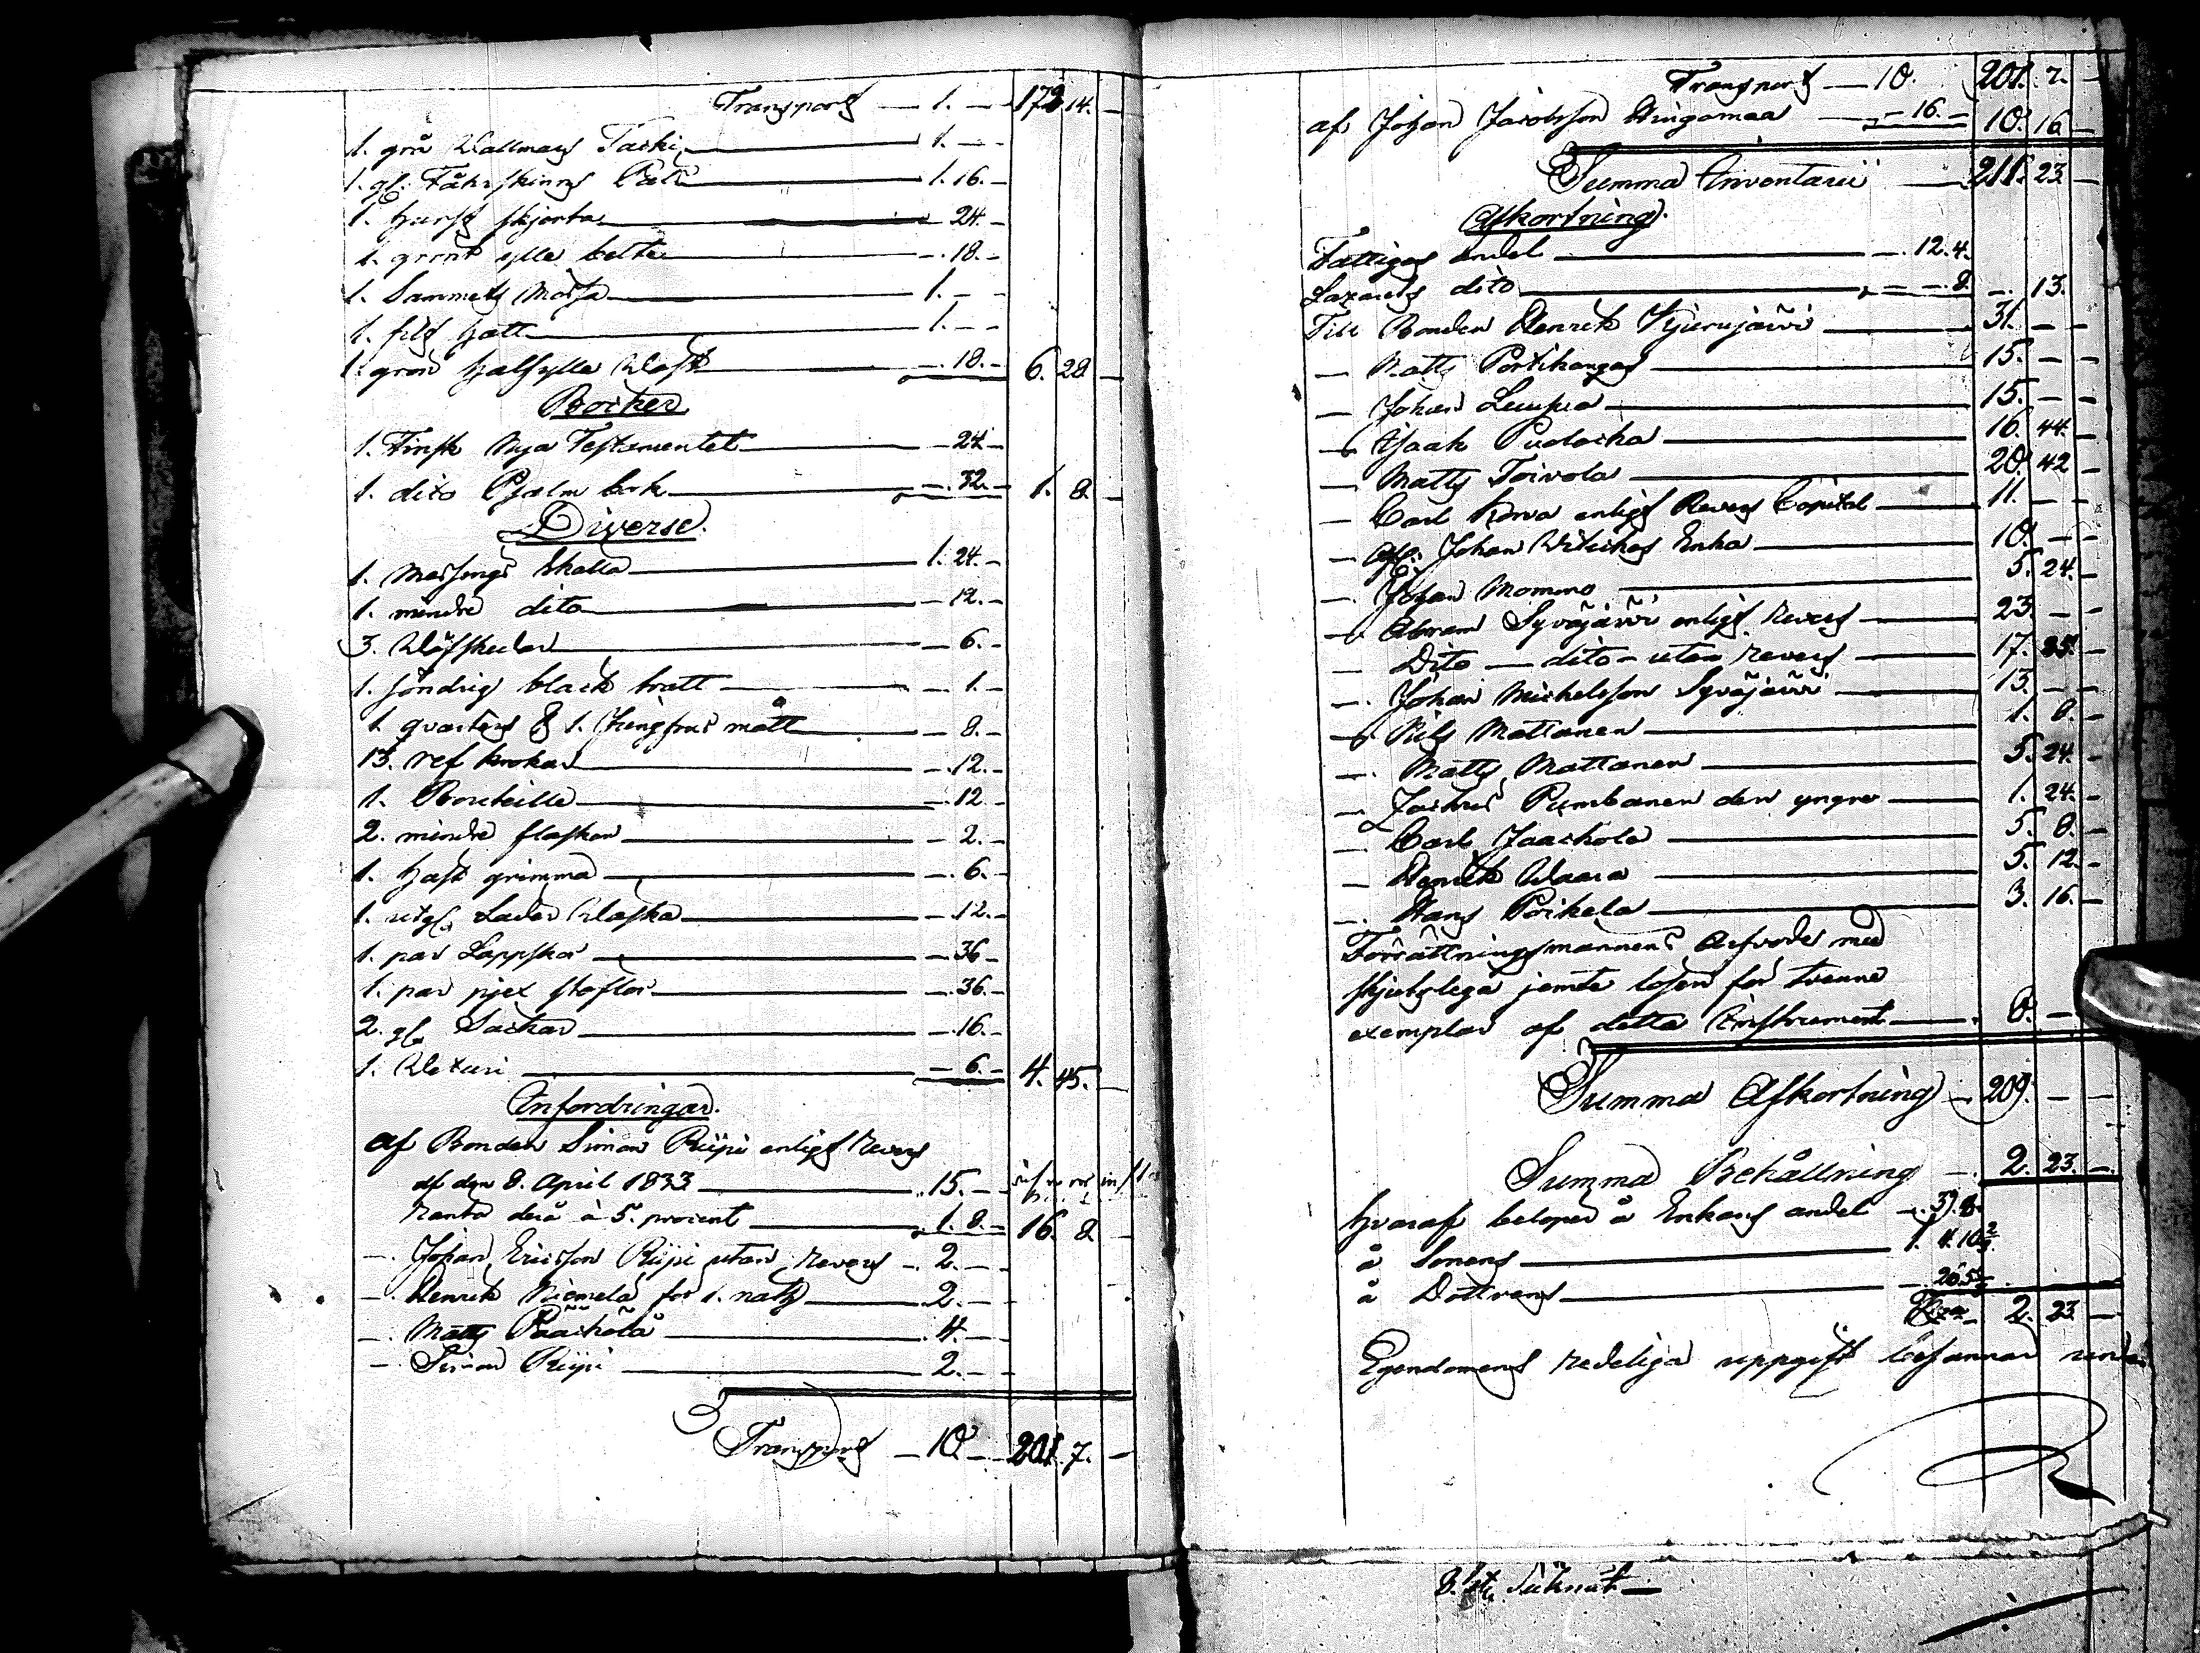 Transport — 1. — — 172. 14. —
1. grå Wallmans Tacki — 1. — —
1. gl: Fåhrskinns Päls — 1. 16. —
1. hurst skjorta — — 24. —
1. grönt ylle bälte — —. 18. —
1. Sammets Mössa — 1. — —
1. filt hatt — 1. — —
1. grön halfylle Wäst — —. 18. — 6. 28. —
Böcker
1. Finsk Nya Testamentet — — 24. —
1. dito Psalm bok — —. 32. — 1. 8. —
Diverse.
1. Messings skålla — 1. 24. —
1. mindre dito — — 12. —
3. Wäfskedar — — 6. —
1. söndrig bläck tratt — — 1. —
1 qvarters & 1. Jungfrus mått — — 8. —
13. ref krokar — —. 12. —
1. Bouteille — —. 12 —
2. mindre flaskor — — 2. —
1. häst grimma — —. 6. —
1. utgl. Läder Wäska — —. 12. —
1. par Lappskor — — 36 —
1. par pjex stöflor — —. 36. —
2. gl. Säckar — —. 16. —
1. — 6. — 4. 45. —
Infordringar.
af Bonden Simon Riipi enligt Revers
af den 8. April 1833 — 15. — —
Ränta derå à 5. procent — 1. 8. — 16. 8. —
—. Johan Ericsson Riipi utan revers — 2. — —
—. Henrik Niemelä för 1. nät — 2. — —
—. Matts Pääckölä — 4. — —
— Simon Riipi — 2. — —
Transport — 10. — 201. 7. —
Transport — 10. 201. 7. —
af Johan Jacobsson Hingamaa — — 16. — 10. 16 —
Summa Inventarii — 211. 23. —
Afkortning.
Fattiges andel — —. 12. 4.
Lazaretts dito — — —. 8. —. 13.
Till Bonden Henrik Kjerujärvi — 31. — —
— Matts Portikangas — 15. — —
— Johan Lempeä — 15. — —
— Isaak Pudacka — 16. 44. —
— Matts Toivola — 20. 42 —
— Carl Korva enligt Revers Capital — 11. — —
— Afl: Johan Enka — 10. — —
—. Johan Mommo — 5. 24. —
— Abram Syväjärvi enligt revers — 23. — —
— Dito — dito — utan revers — 17. —
—. Johan Michelsson Syväjärvi — 13. — —
— Nils Mattanen — 1. 8. —
—. Matts Mattanen — 5. 24. —
— Pumbanen den yngre — 1. 24. —
— Carl Jaackola — 5. 8. —
— Henrik Waara — 5. 12. —
—. Hans Poikela — 3. 16. —
Förrättningsmannens Arfvode med
skjutslega jemte lösen för tvenne
exemplar af detta Instrument — 8. —
Summa Afkortning — 209. — —
Summa Behållning —. 2. 23. —
hvaraf belöper å Enkans andel —. 39. 8.
å Sonens — 1. 4. 10 2/9.
å Dottrens —
2. 23 —
Egendomens redeliga uppgift